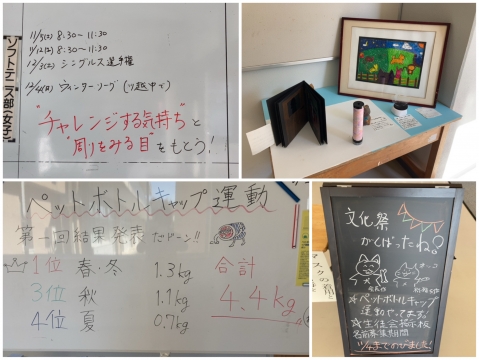 ソフトテニス部(女子)
11/5(土) 8:30〜11:30
11/12(土) 8:30〜11:30
12/3(土) シングルス選手権
12/4(日) ウィンターリーグ
"チャレンジする気持ち"と
"周りをみる目"をもとう!
ペットボトルキャップ運動
第一回結果発表だドーン!!
1位 春・冬 1.3kg
3位 秋 1.1kg
4位 夏 0.7kg
合計
4.4kg
文化祭
がんばったね?
☆ペットボトルキャップ
運動やってます!
☆生徒会掲示板
名前募集期間
11/4までのびました!